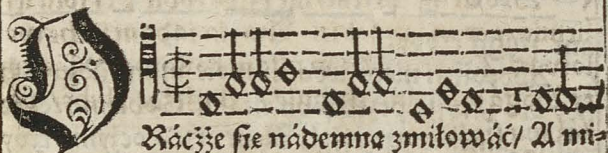 Rácżże ſię nádemną zmiłowáć/ A mi=